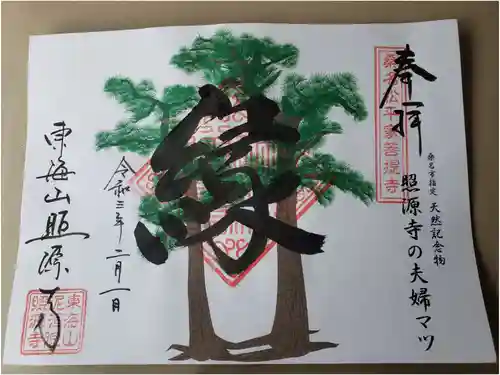 奉拝
桑名松平家菩提寺
桑名市指定 天然記念物
照源寺の夫婦マツ
縁
令和三年二月一日
東海山照源寺